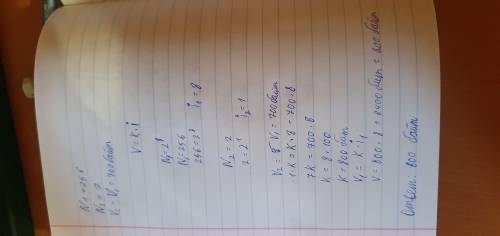 N₁ = 256
N₂ = 2
V₂ = V₁ = 700 байт
V = K · i
N₁ = 2ⁱ
N₁ = 256
256 = 2⁸ i₁ = 8
N₂ = 2
2 = 2¹ i₂ = 1
V₂ = V₁ = 700 байт
1 · K = K · 8 - 700 · 8
7K = 700 · 8
K = 8 · 100
K = 800 бит
V₁ = K · i₁
V = 800 · 8 = 6400 бит = 800 байт
Ответ: 800 байт